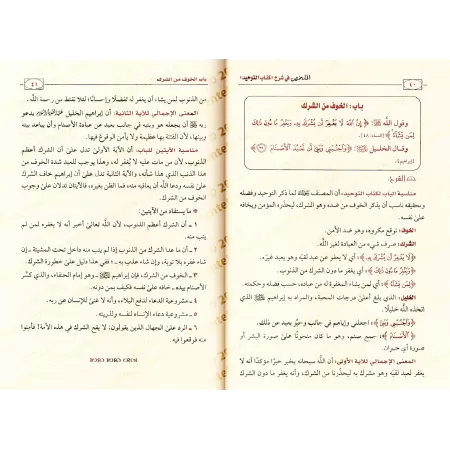 ٤٠
الملخص في شرح كتاب التوحيد
باب: الخوف من الشرك
وقول الله: ﴿إِنَّ اللَّهَ لَا يَغْفِرُ أَن يُشْرَكَ بِهِ وَيَغْفِرُ مَا دُونَ ذَٰلِكَ
لِمَن يَشَاءُ﴾ [النساء: ٤٨].
وقال الخليل: ﴿وَاجْنُبْنِي وَبَنِيَّ أَن نَّعْبُدَ الْأَصْنَامَ﴾
[إبراهيم]
مناسبة الباب لكتاب التوحيد: أن المصنف لما ذكر التوحيد وفضله
وتحقيقه ناسب أن يذكر الخوف من ضده وهو الشرك، ليحذره المؤمن ويخافه
على نفسه.
الخوف: توقع مكروه، وهو ضد الأمن.
الشرك: صرف شيء من العبادة لغير الله.
﴿لَا يَغْفِرُ أَن يُشْرَكَ بِهِ﴾: أي لا يعفو عن عبد لقيه وهو يعبد غيره.
﴿وَيَغْفِرُ مَا دُونَ ذَٰلِكَ﴾: أي يغفر ما دون الشرك من الذنوب.
﴿لِمَن يَشَاءُ﴾: أي لمن يشاء المغفرة له من عباده، حسب فضله وحكمته.
الخليل: الذي بلغ أعلى درجات المحبة، والمراد به إبراهيم ﷺ الذي
اتخذه الله خليلًا.
﴿وَاجْنُبْنِي وَبَنِيَّ﴾: اجعلني وإياهم في جانب وحيز بعيد عن ذلك.
﴿الْأَصْنَامَ﴾: جمع صنم، وهو ما كان منحوتًا على صورة البشر أو
صورة أي حيوان.
المعنى الإجمالي للآية الأولى: أن الله سبحانه يخبر خبرًا مؤكدًا أنه لا
يغفر لعبد لقيه وهو مشرك به ليحذرنا من الشرك، وأنه يغفر ما دون الشرك
باب الخوف من الشرك
٤١
من الذنوب لمن يشاء أن يغفر له تفضلًا وإحسانًا؛ لئلا نقنط من رحمة الله.
المعنى الإجمالي للآية الثانية: أن إبراهيم الخليل يدعو
ربه أن يجعله هو وبنيه في جانب بعيد عن عبادة الأصنام وأن يباعد بينه
وبينها، لأن الفتنة بها عظيمة ولا يأمن الوقوع فيها.
مناسبة الآيتين للباب: أن الآية الأولى تدل على أن الشرك أعظم
الذنوب، لأن من مات عليه لا يُغفر له، وهذا يوجب للعبد شدة الخوف من
هذا الذنب الذي هذا شأنه، والآية الثانية تدل على أن إبراهيم خاف الشرك
على نفسه ودعا الله أن يعافيه منه، فما الظن بغيره، فالآيتان تدلان على وجوب
الخوف من الشرك.
* ما يستفاد من الآيتين:
١ ـ أن الشرك أعظم الذنوب، لأن الله تعالى أخبر أنه لا يغفره لمن لم
يتب منه.
٢ ـ أن ما عدا الشرك من الذنوب إذا لم يتب منه داخل تحت المشيئة ـ إن
شاء غفره بلا توبة، وإن شاء عذب به ـ ففي هذا دليل على خطورة الشرك.
٣ ـ الخوف من الشرك، فإن إبراهيم ﷺ ـ وهو إمام الحنفاء، والذي كسَّر
الأصنام بيده ـ خافه على نفسه فكيف بمن دونه.
٤ ـ مشروعية الدعاء لدفع البلاء، وأنه لا غنى للإنسان عن ربه.
٥ ـ مشروعية دعاء الإنسان لنفسه ولذريته.
٦ ـ الرد على الجهال الذين يقولون: لا يقع الشرك في هذه الأمة! فأمِنوا
منه فوقعوا فيه.